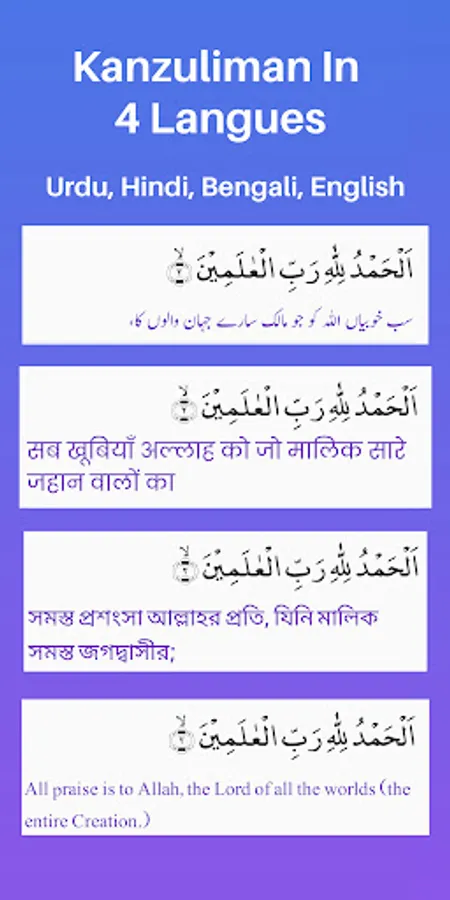 Kanzuliman In
4 Langues
Urdu, Hindi, Bengali, English
اَلْحَمْدُ لِلّٰهِ رَبِّ الْعٰلَمِیْنَۙ
سب خوبیاں اللہ کو جو مالک سارے جہان والوں کا،
اَلْحَمْدُ لِلّٰهِ رَبِّ الْعٰلَمِیْنَۙ
सब खूबियाँ अल्लाह को जो मालिक सारे
जहान वालों का
اَلْحَمْدُ لِلّٰهِ رَبِّ الْعٰلَمِیْنَۙ
সমস্ত প্রশংসা আল্লাহর প্রতি, যিনি মালিক
সমস্ত জগদ্বাসীর;
اَلْحَمْدُ لِلّٰهِ رَبِّ الْعٰلَمِیْنَۙ
All praise is to Allah, the Lord of all the worlds (the
entire Creation.)